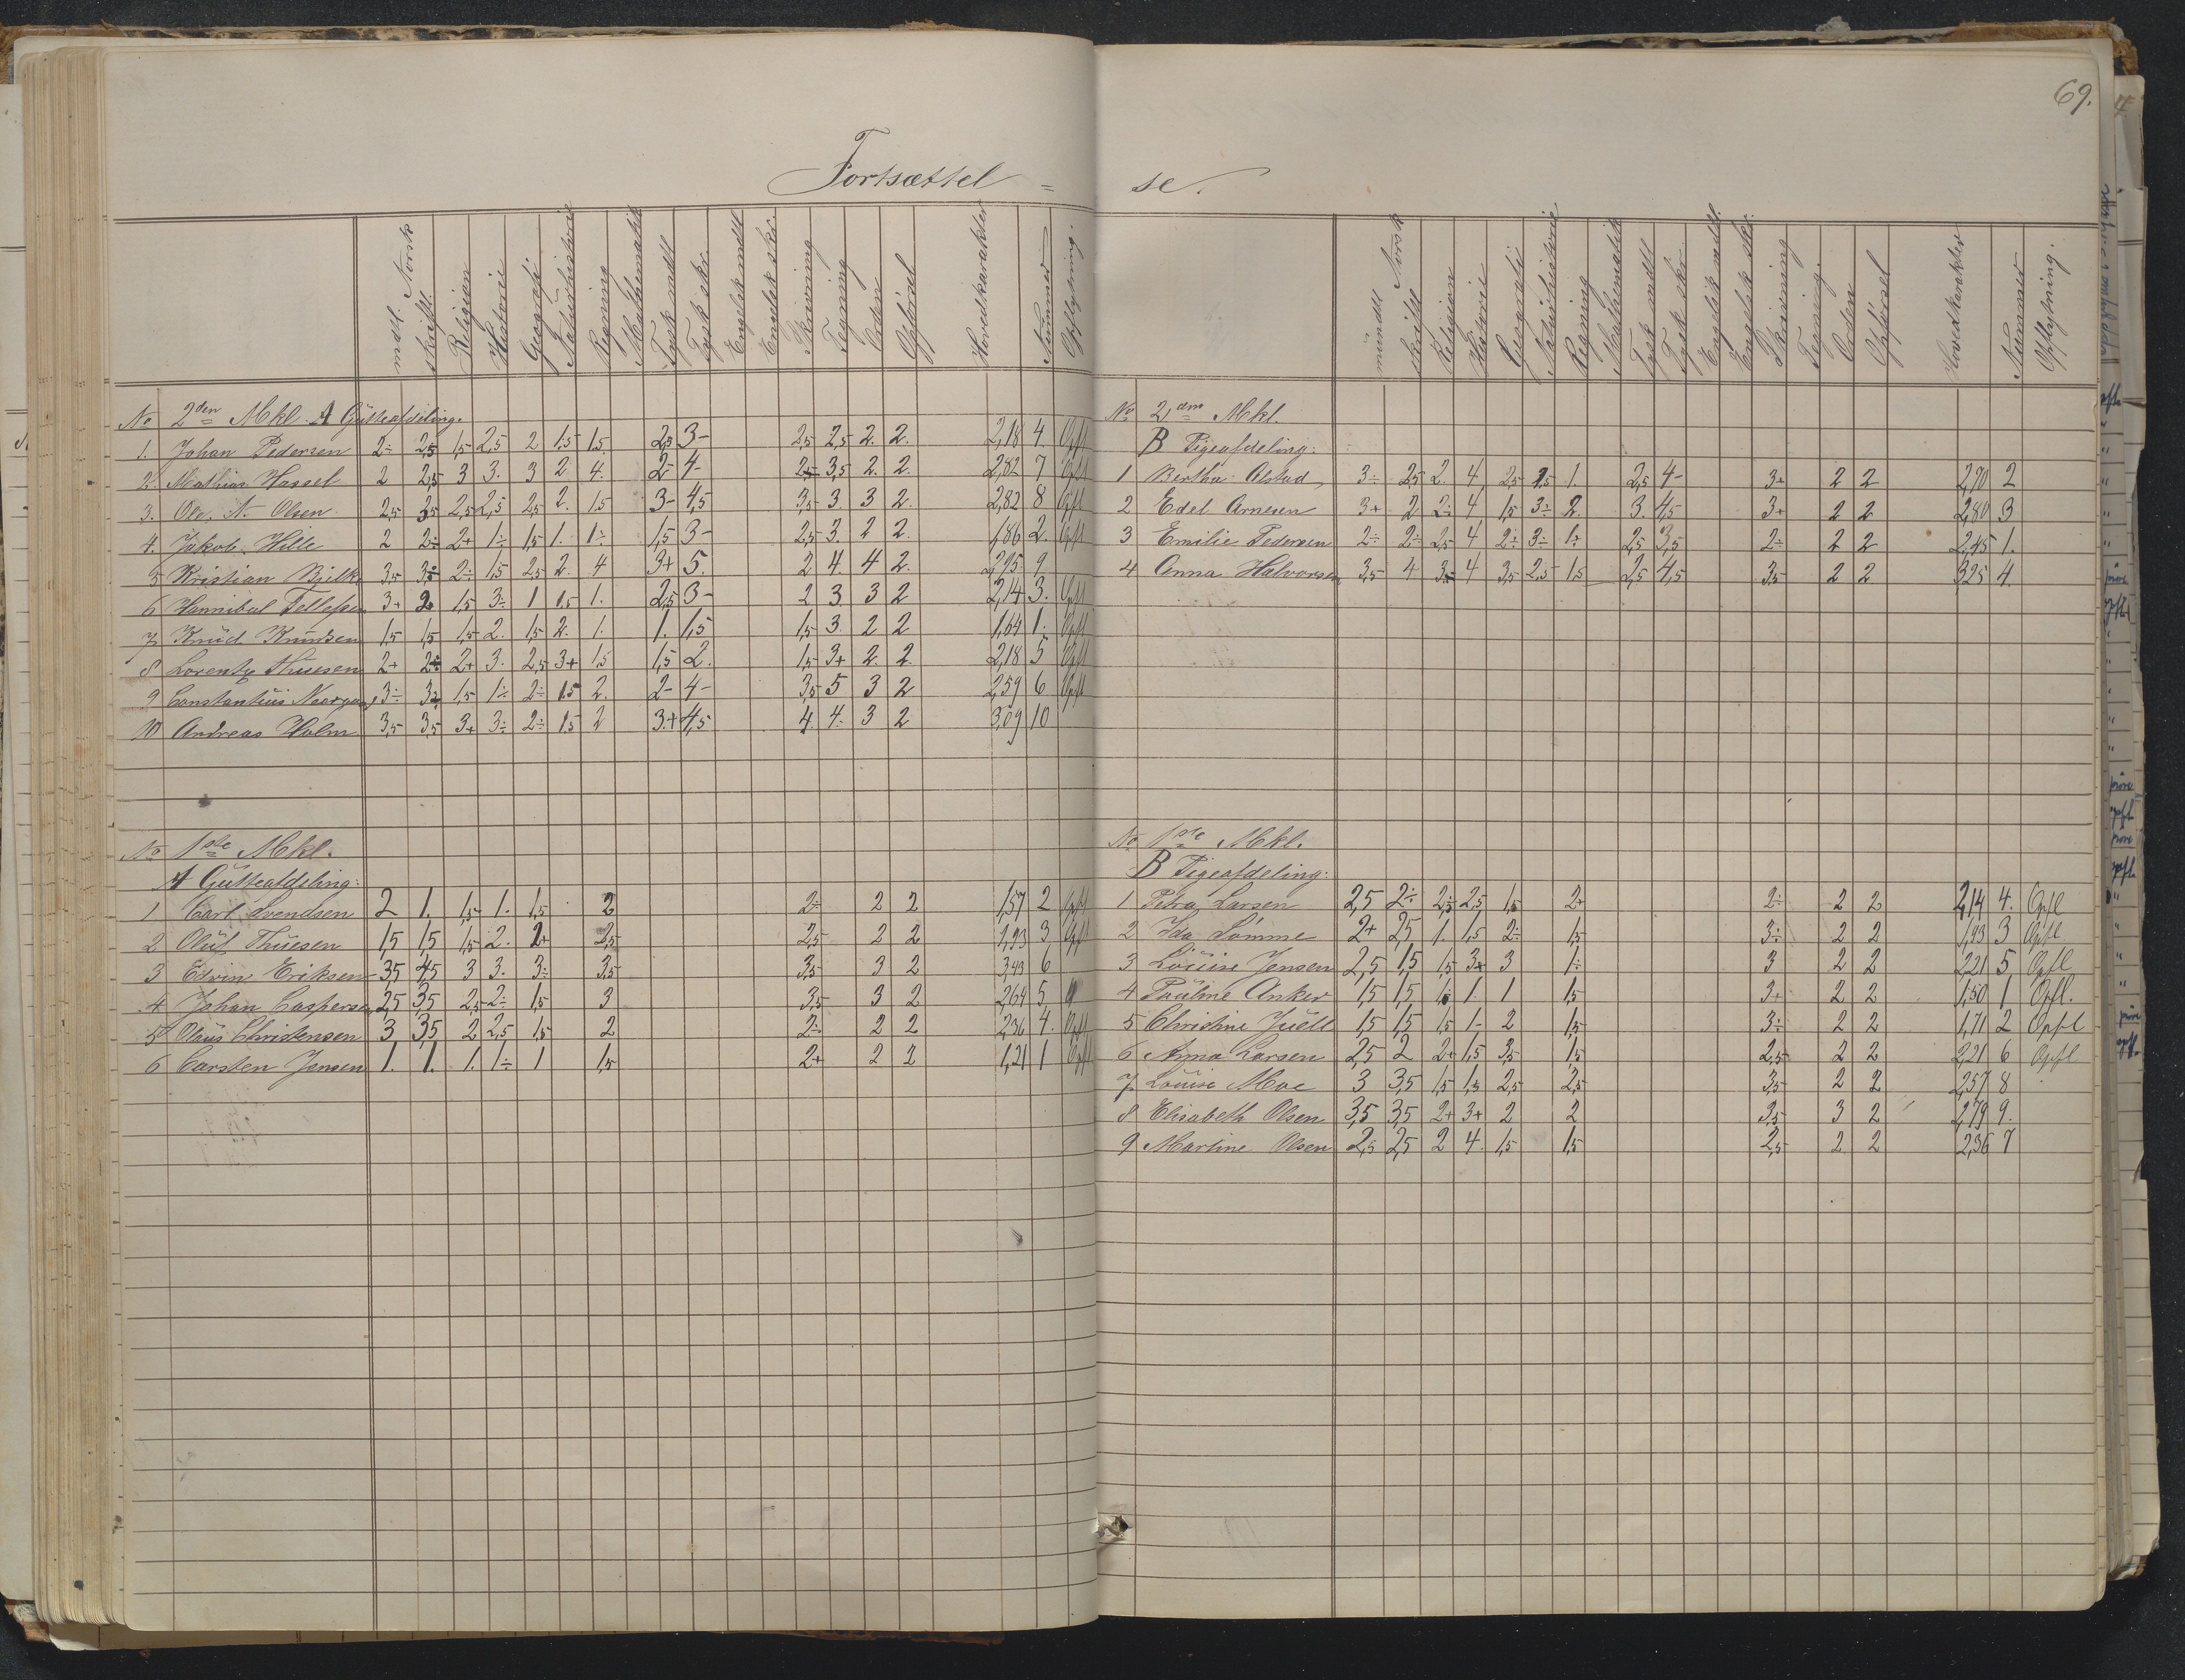 69.
Fortsættel = se.
mdl. Norsk skriftl. Religion Historie Geografi Naturhistorie Regning Mathematik Tysk mdl Tysk skr. Engelsk mdl Engelsk skr. Skrivning Tegning Orden Opførsel Hovedkarakter Nummer Opflytning.
No 2den Mkl. A Gutteafdeling.
1. Johan Pedersen 2÷ 2,5 1,5 2,5 2 1.5 1.5 2,5 3- 2,5 2,5 2. 2. 2,18 4. Opfl
2. Mathias Hassel 2 2,5 3 3. 3 2 4. 2- 4- 2,5 3,5 2. 2. 2,82 7 Opfl
3. Ole. N. Olsen 2,5 3,5 2,5 2,5 2,5 2. 1.5 3- 4,5 3,5 3. 3 2. 2,82 8 Opfl
4. Jakob Hille 2 2÷ 2+ 1÷ 1,5 1. 1÷ 1,5 3- 2,5 3. 2 2. 1,86 2. Opfl
5 Kristian Bjelke 3,5 3÷ 2÷ 1,5 2,5 2. 4 3+ 5. 2 4. 4 2. 2,95 9
6 Hannibal Tellefsen 3+ 2 1,5 3÷ 1 1.5 1. 2,5 3- 2 3. 3 2 2,14 3. Opfl
7 Knud Knudsen 1,5 1,5 1,5 2. 1,5 2. 1. 1. 1,5 1,5 3. 2 2 1,64 1. Opfl
8 Lorentz Thuesen 2+ 2÷ 2+ 3. 2,5 3+ 1,5 1,5 2. 1,5 3+ 2. 2. 2,18 5 Opfl
9 Constantius Norgaard 3÷ 3 1,5 1÷ 2÷ 1.5 2. 2- 4- 3,5 5 3 2 2,59 6 Opfl
10 Andreas Holm 3,5 3,5 3+ 3÷ 2÷ 1.5 2 3+ 4,5 4. 4÷ 3 2 3,09 10
No 1ste Mkl.
A Gutteafdeling:
1 Carl Svendsen 2 1. 1,5 1. 1,5 2 2÷ 2 2 1,57 2 Opfl
2 Oluf Thuesen 1,5 1,5 1,5 2. 2+ 2,5 2,5 2 2 1,93 3 Opfl
3 Edvin Eriksen 3,5 4,5 3 3. 3÷ 3,5 3,5 3 2 3,43 6
4 Johan Caspersen 2,5 3,5 2,5 2÷ 1,5 3 3,5 3 2 2,64 5
5 Olaus Christensen 3 3,5 2 2,5 1,5 2 2÷ 2 2 2,36 4. Opfl
6 Carsten Jensen 1. 1. 1. 1÷ 1 1,5 2+ 2 2 1,21 1 Opfl
mundtl Norsk skriftl Religion Historie Geografi Naturhistorie Regning Mathematik Tysk mdtl Tysk skr. Engelsk mdl. Engelsk skr. Skrivning Tegning. Orden Opførsel Hovedkarakter Nummer Opflytning.
No 2den Mkl.
B Pigeafdeling:
1 Bertha Alstad 3÷ 2,5 2. 4 2,5 1,5 1. 2,5 4- 3+ 2 2 2,70 2
2 Edel Arnesen 3+ 2 2÷ 4 1,5 3÷ 2. 3. 4,5 3+ 2 2 2,80 3
3 Emilie Pedersen 2÷ 2÷ 2,5 4 2÷ 3÷ 1÷ 2,5 3,5 2÷ 2 2 2,45 1.
4 Anna Halvorsen 3,5 4 3 4 3,5 2,5 1,5 2,5 4,5 3,5 2 2 3,25 4.
No 1ste Mkl.
B Pigeafdeling:
1 Petra Larsen 2,5 2÷ 2,5 2,5 1,5 2+ 2÷ 2 2 2,14 4. Opfl
2 Ida Lømme 2+ 2,5 1. 1,5 2÷ 1,5 3÷ 2 2 1,93 3 Opfl
3 Louise Jensen 2,5 1,5 1,5 3+ 3 1÷ 3 2 2 2,21 5 Opfl
4 Pauline Anker 1,5 1,5 1,5 1. 1 1,5 3+ 2 2 1,50 1 Opfl.
5 Christine Juell 1,5 1,5 1,5 1- 2 1,5 3÷ 2 2 1,71 2 Opfl
6 Anna Larsen 2,5 2 2+ 1,5 3,5 1,5 2,5 2 2 2,21 6 Opfl
7 Louise Moe 3 3,5 1,5 1,5 2,5 2,5 3,5 2 2 2,57 8
8 Elisabeth Olsen 3,5 3,5 2+ 3+ 2 2 3,5 3 2 2,79 9.
9 Martine Olsen 2,5 2,5 2 4. 1,5 1,5 2,5 2 2 2,36 7